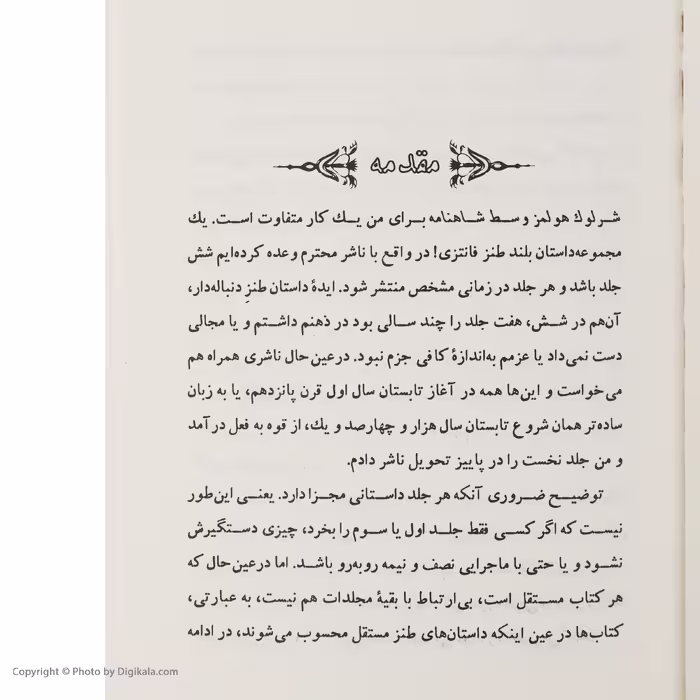 مقدمه
شرلوك هولمز وسط شاهنامه برای من يك كار متفاوت است. يك
مجموعه‌داستان بلند طنز فانتزی! در واقع با ناشر محترم وعده كرده‌ايم شش
جلد باشد و هر جلد در زمانی مشخص منتشر شود. ايدهٔ داستان طنزِ دنباله‌دار،
آن‌هم در شش، هفت جلد را چند سالی بود در ذهنم داشتم و يا مجالی
دست نمی‌داد يا عزمم به‌اندازهٔ كافی جزم نبود. درعين‌حال ناشری همراه هم
می‌خواست و اين‌ها همه در آغاز تابستان سال اول قرن پانزدهم، يا به زبان
ساده‌تر همان شروع تابستان سال هزار و چهارصد و يك، از قوه به فعل درآمد
و من جلد نخست را در پاييز تحويل ناشر دادم.
توضيح ضروری آنكه هر جلد داستانی مجزا دارد. يعنی اين‌طور
نيست كه اگر كسی فقط جلد اول يا سوم را بخرد، چيزی دستگيرش
نشود و يا حتی با ماجرايی نصف و نيمه روبه‌رو باشد. اما درعين‌حال كه
هر كتاب مستقل است، بی‌ارتباط با بقيهٔ مجلدات هم نيست، به عبارتی،
كتاب‌ها در عين اينكه داستان‌های طنز مستقل محسوب می‌شوند، در ادامه
Copyright © Photo by Digikala.com